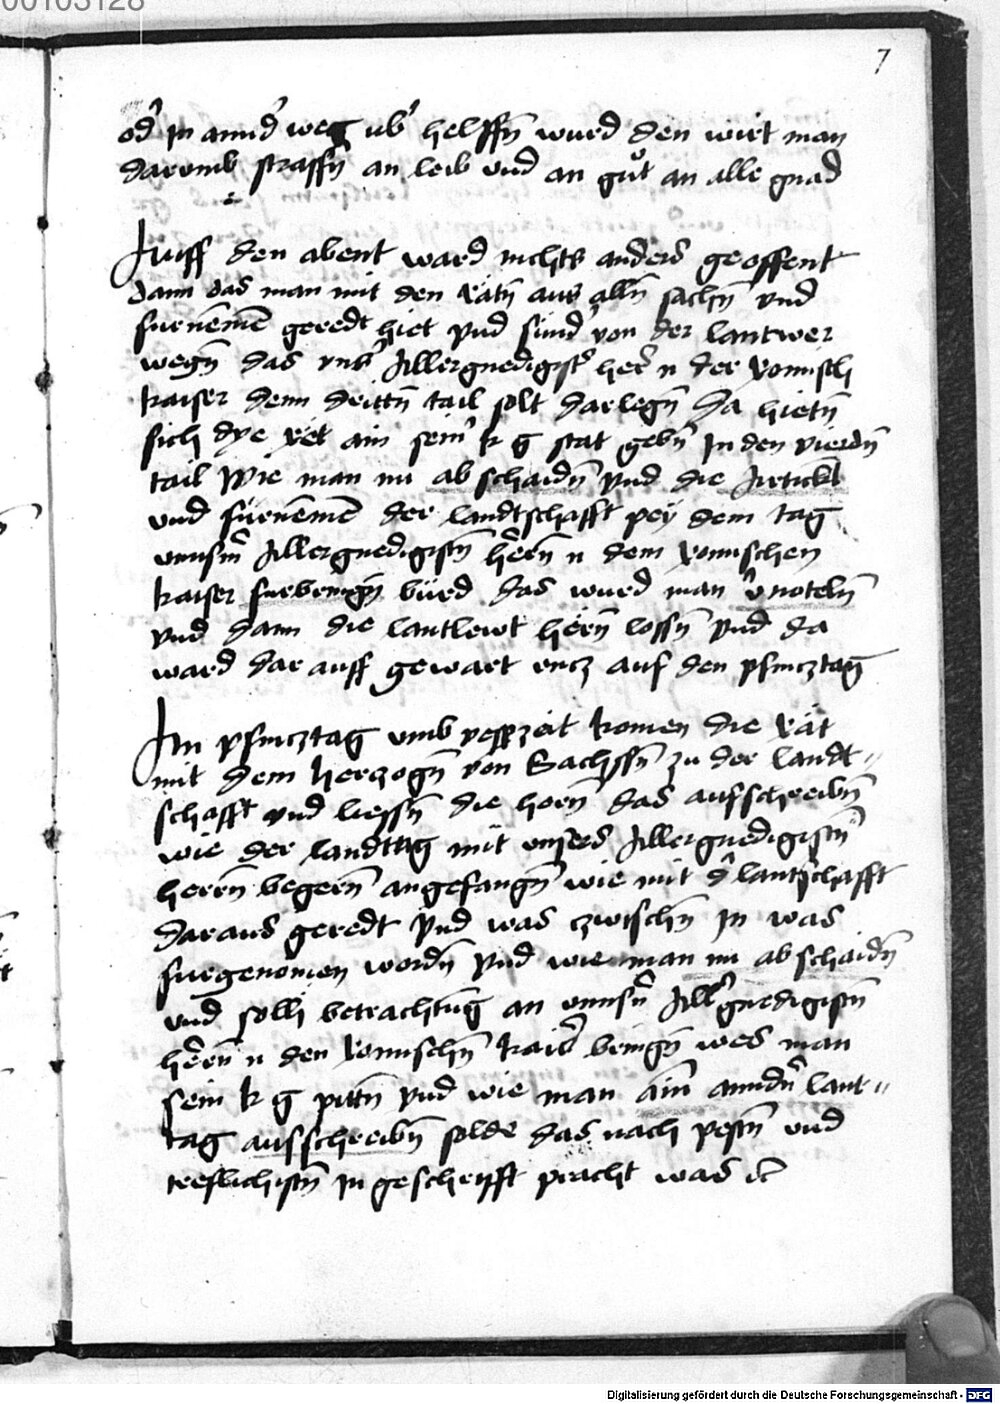 00103128
7
od' in annd' weg ub' helffn̄ wurd den wirt man
darumb straffn̄ an leib vnd an gůt an alle gnad
Auff den abent ward nichts anders geoffent
dann das man mit den rätn̄ aus alln̄ sachn̄ vnd
furnemen geredt hiet vnd sund' von der lantwer
wegn̄ das vns' Allergnedigist' her' n der romisch
kaiser denn drittn̄ tail solt darlegn̄ Da hietn̄
sich dye rët ain sein' k g stat gebn̄ In den vierdn̄
tail Wie man nu abschaidn̄ vnd die Artickl
vnd fürnemen der landtschafft pey dem tag
vnnsm̄ Allergnedigistn̄ hern̄ n dem romischen
kaiser furbringn̄ würd das wurd man v'noteln̄
vnd dann die lantlewt hörn̄ lossn̄ vnd da
ward dar auff gewart vncz auf den pfincztag
Am pfincztag vmb vesp'zeit komen die rät
mit dem herczogn̄ von Sachssn̄ zu der landt-
schafft vnd liessn̄ die horn̄ das aufschreibn̄
wie der landttag mit vnsers Allergnedigistn̄
herrn̄ begern̄ angefangn̄ wie mit d' lantschafft
daraus geredt vnd was zwischn̄ In was
furgenomen wordn̄ vnd wie man nu abschaidn̄
vnd solh betrachtung an vnnsn̄ All'gnedigistn̄
hern̄ n den romischn̄ kais' bringn̄ wes man
sein k g pittn̄ vnd wie man ain anndn̄ lant-
tag aufschreibn̄ solde das nach pestn̄ vnd
treflichistn̄ In geschrifft pracht was ꝛc
Digitalisierung gefördert durch die Deutsche Forschungsgemeinschaft - DFG